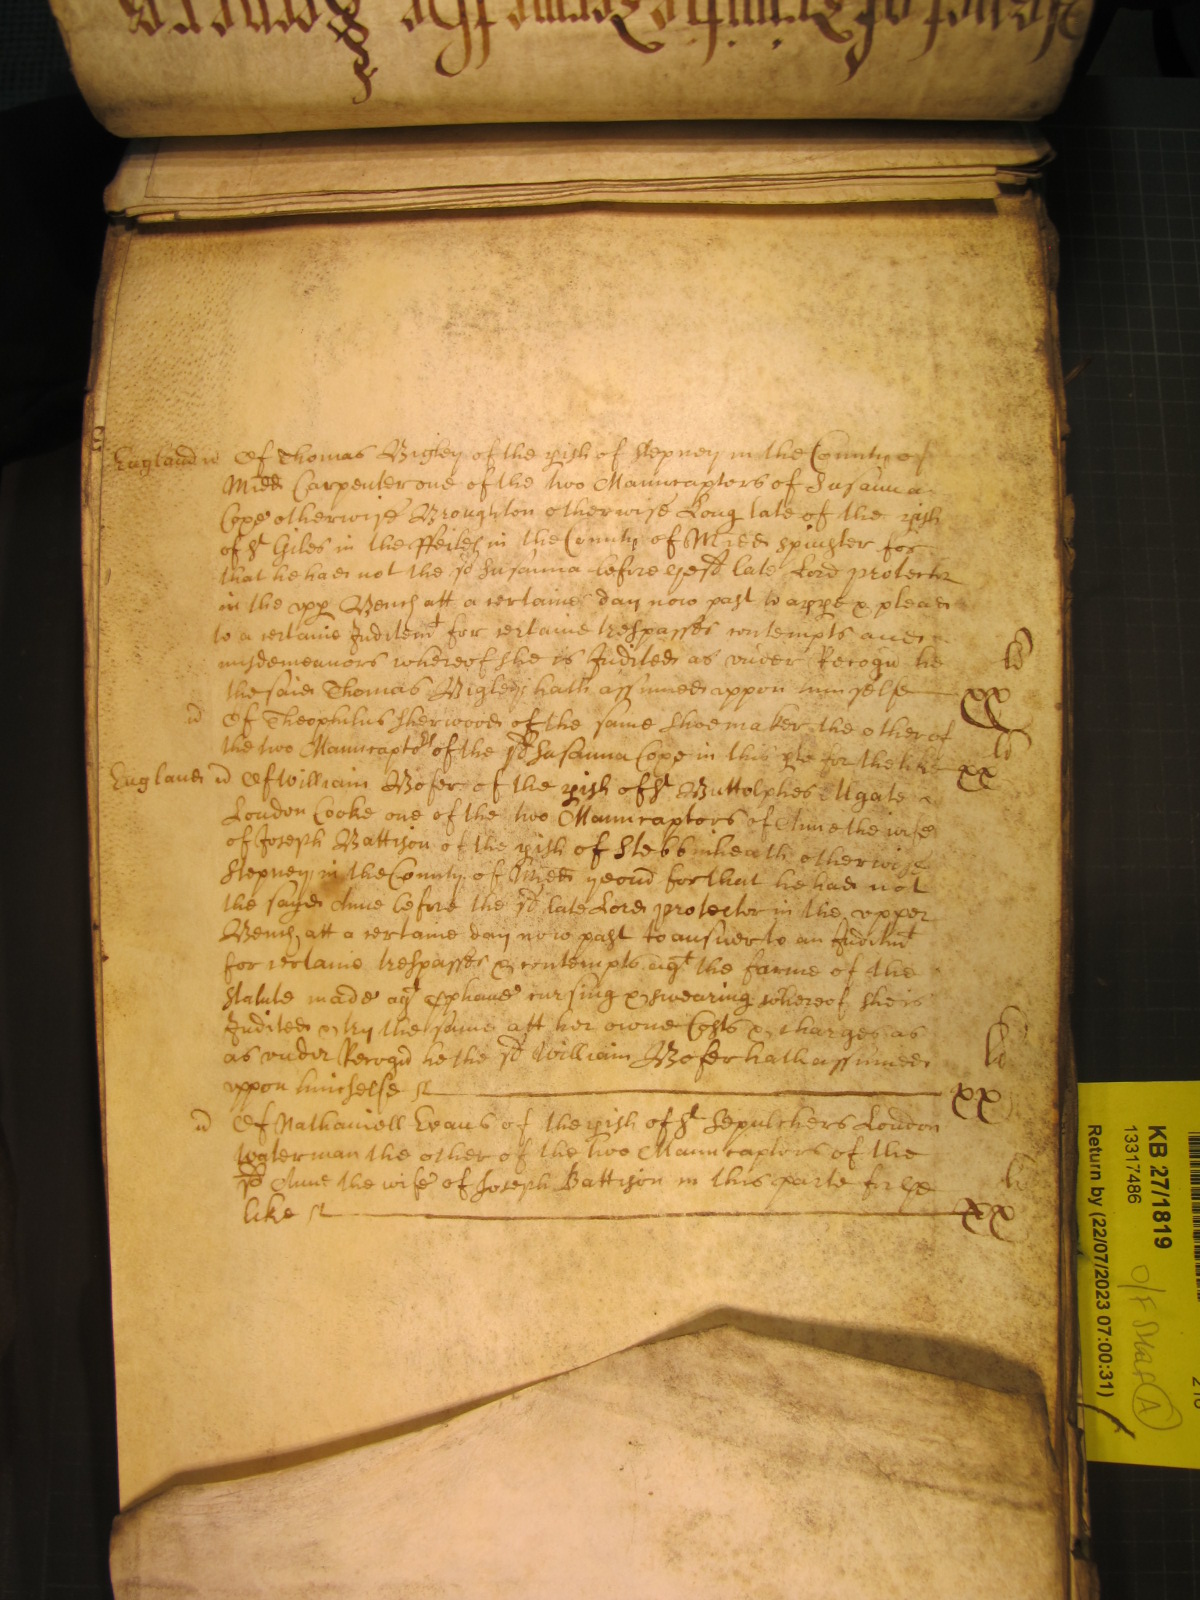 England ss Of Thomas Bigley of the pish of Stepney in the County of
Midd Carpenter one of the two Manucaptors of Susanna
Cope otherwise Broughton otherwise Long late of the pish
of St Giles in the ffeilds in the County of Midd Spinster for
that he had not the sd Susanna before ye sd late Lord protector
in the upp Bench att a certaine day now past to appe & plead
to a certaine Inditemt for certaine trespasses contempts and
misdemeanors whereof she is Indited as under Recogn he
the said Thomas Bigley hath assumed uppon himselfe
li
xx
Of Theophilus Sherwood of the same Shoemaker the other of
the two Manucaptors of the sd Susanna Cope in this pte for the like
li
xx
England ss Of William Boser of the pish of St Buttolphes Algate
London Cooke one of the two Manucaptors of Anne the wife
of Joseph Battison of the pish of Stebbinheath otherwise
Stepney in the County of Midd yeom for that he had not
the sayd Anne before the sd late Lord protector in the upper
Bench att a certaine day now past to answer to an Inditmt
for certaine trespasses & contempts agt the forme of the
Statute made agt pphane cursing & swearing whereof she is
Indited & try the same att her owne Costs & charges as
as under Recogn he the sd William Boser hath assumed
uppon himselfe
li
xx
Of Nathaniell Evans of the pish of St Sepulchers London
Waterman the other of the two Manucaptors of the
sd Anne the wife of Joseph Battison in this parte for ye
like
li
xx
KB 27/1819
13317486
Return by (22/07/2023 07:00:31)
O/F Staff A